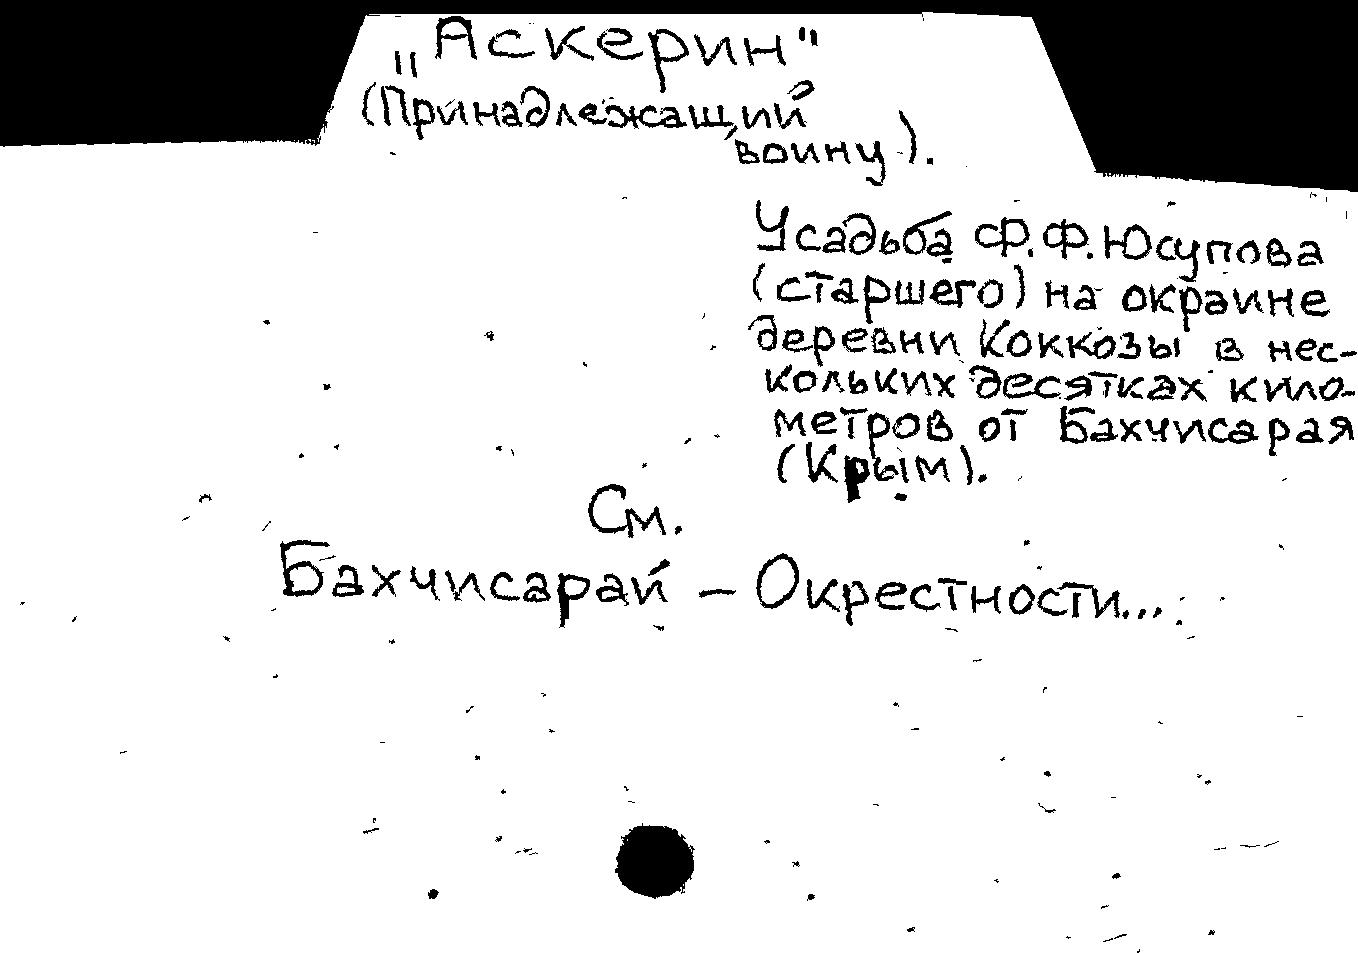 „Аскерин"
(Принадлежащий
воину).
Усадьба Ф.Ф.Юсупова
(старшего) на окраине
деревни Коккозы в нес-
кольких десятках кило-
метров от Бахчисарая
(Крым).
См.
Бахчисарай – Окрестности...